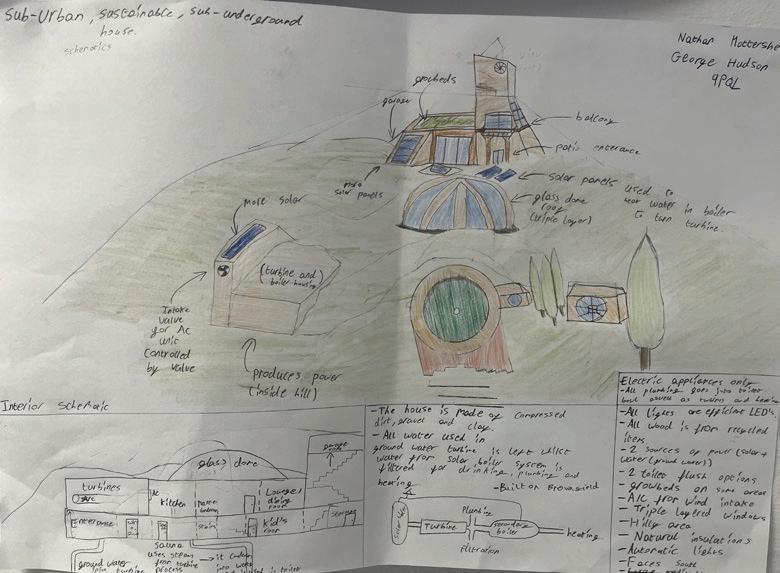 Sub-Urban, sustainable, sub-underground
house.
schematics
Nathan
George Hudson
9PQL
growbeds
garage
balcony
patio enterance
more
solar panels
solar panels used to
heat water in boiler
to turn turbine.
glass dome
roof
(triple layer)
more solar
(turbine and
boiler housing)
Intake
valve
for AC
Controlled
by valve
produces power
(inside hill)
Interior Schematic
turbines
AC
Kitchen
glass dome
Lounge/
dining
room
garage
Enterance
kid's
room
storage
sauna
uses steam
from turbine
process
ground water
turbine
-The house is made of compressed
dirt, gravel and clay.
-All water used in
ground water turbine is kept whilst
water from solar boiler system is
filtered for drinking, plumbing and
heating
-Built on Brownfield
Turbine
Plumbing
secondary
boiler
heating
Filtration
Electric appliances only
-All plumbing goes into toilet
-All lights are efficient LED's.
-All wood is from recycled
items.
-2 sources of power (solar +
water (ground water))
-2 toilet flush options.
-growbeds on some areas
-A/C from wind intake
-Triple layered windows
-Hilly area
-Natural insulations
-Automatic lights
-Faces south